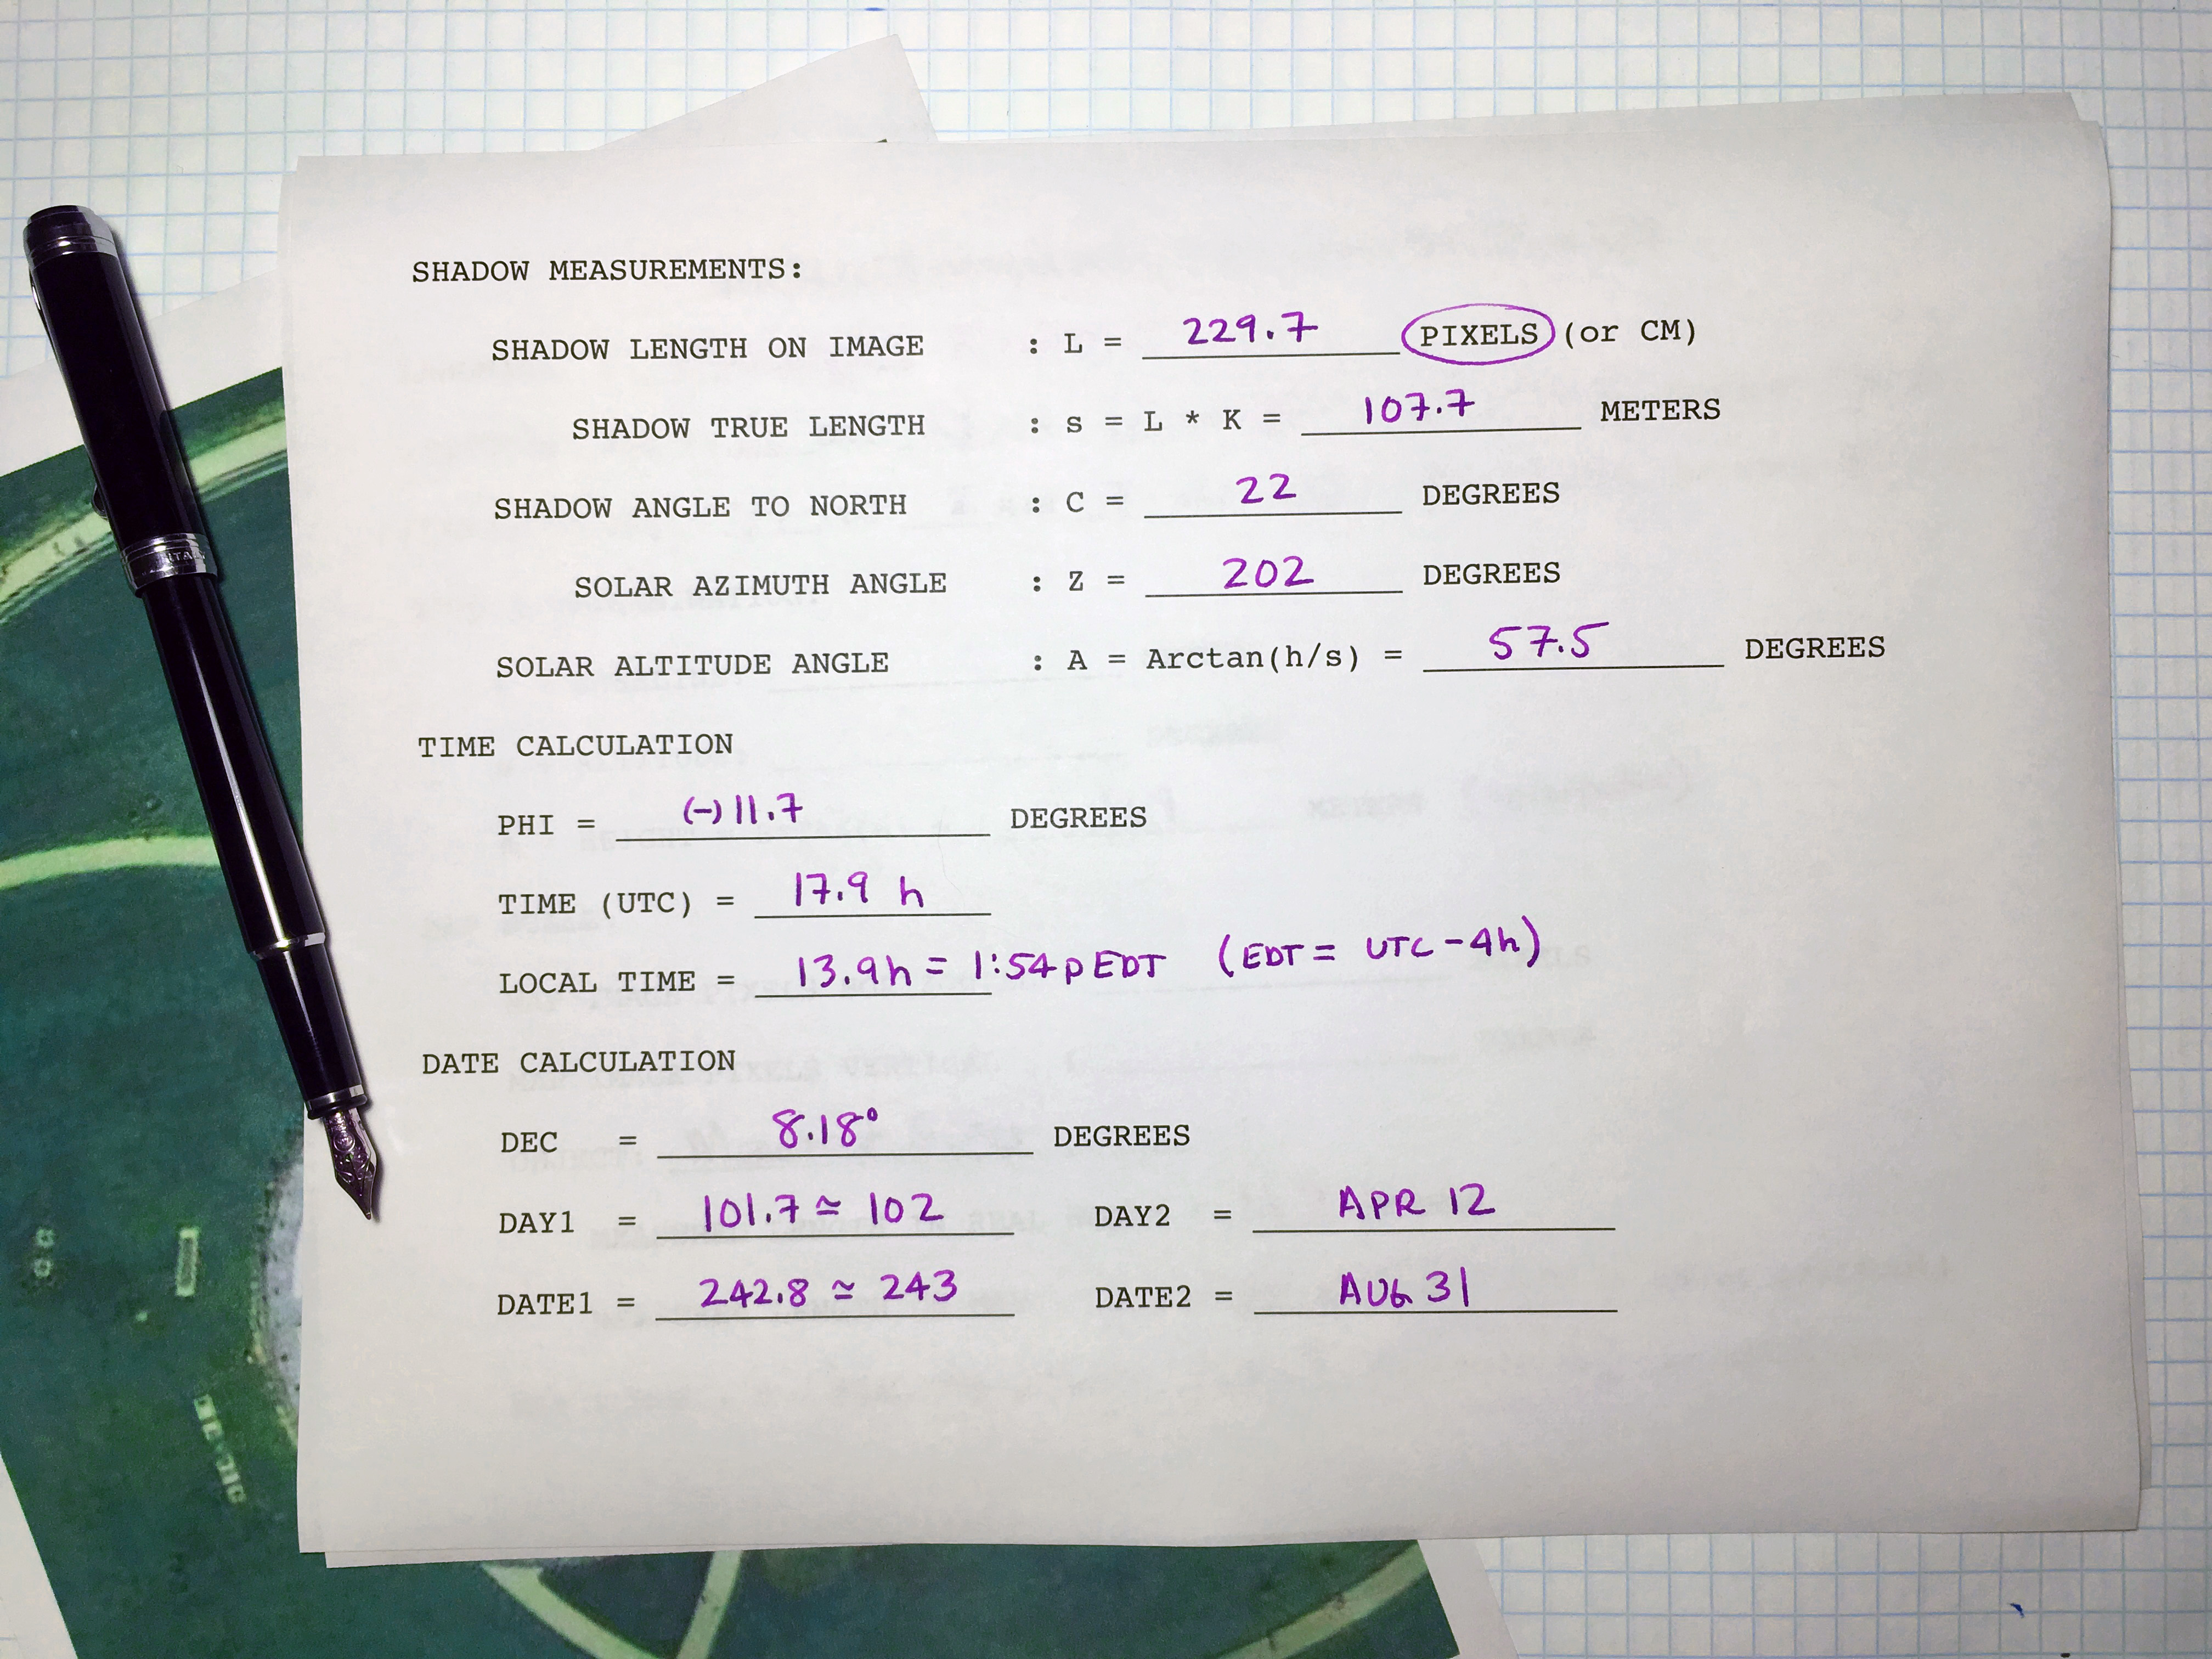 SHADOW MEASUREMENTS:
SHADOW LENGTH ON IMAGE : L = 229.7 PIXELS (or CM)
SHADOW TRUE LENGTH : s = L * K = 107.7 METERS
SHADOW ANGLE TO NORTH : C = 22 DEGREES
SOLAR AZIMUTH ANGLE : Z = 202 DEGREES
SOLAR ALTITUDE ANGLE : A = Arctan(h/s) = 57.5 DEGREES
TIME CALCULATION
PHI = (-) 11.7 DEGREES
TIME (UTC) = 17.9 h
LOCAL TIME = 13.9h = 1:54p EDT (EDT = UTC - 4h)
DATE CALCULATION
DEC = 8.18° DEGREES
DAY1 = 101.7 ≃ 102 DAY2 = APR 12
DATE1 = 242.8 ≃ 243 DATE2 = AUG 31